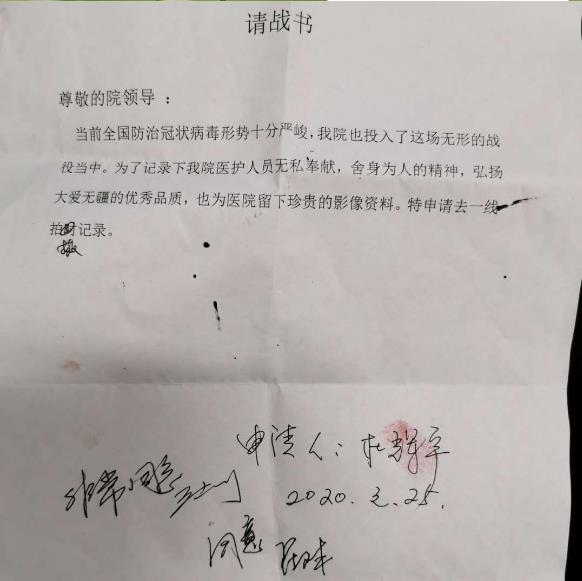 请战书
尊敬的院领导：
当前全国防治冠状病毒形势十分严峻，我院也投入了这场无形的战
役当中。为了记录下我院医护人员无私奉献，舍身为人的精神，弘扬
大爱无疆的优秀品质，也为医院留下珍贵的影像资料。特申请去一线
拍记录。
摄
申请人：杜
非常同意
2020.2.25.
同意